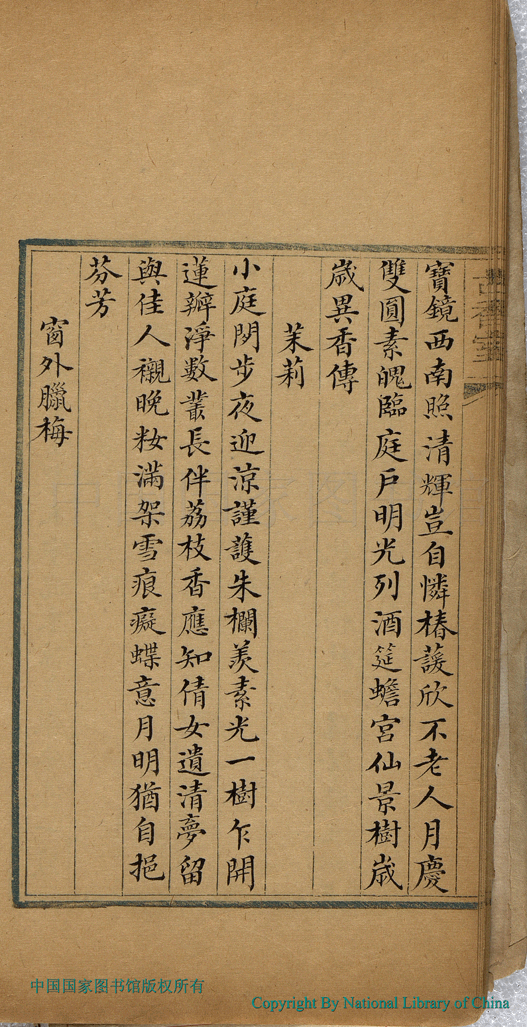 寶鏡西南照清輝豈自憐椿萲欣不老人月慶
雙圓素魄臨庭戶明光列酒筵蟾宮仙景樹歲
歲異香傳
茉莉
小庭閒步夜迎涼謹護朱欄羨素光一樹乍開
蓮瓣淨數叢長伴荔枝香應知倩女遺清夢留
與佳人襯晚粧滿架雪痕癡蝶意月明猶自挹
芬芳
窗外臘梅
中国国家图书馆版权所有
Copyright By National Library of China